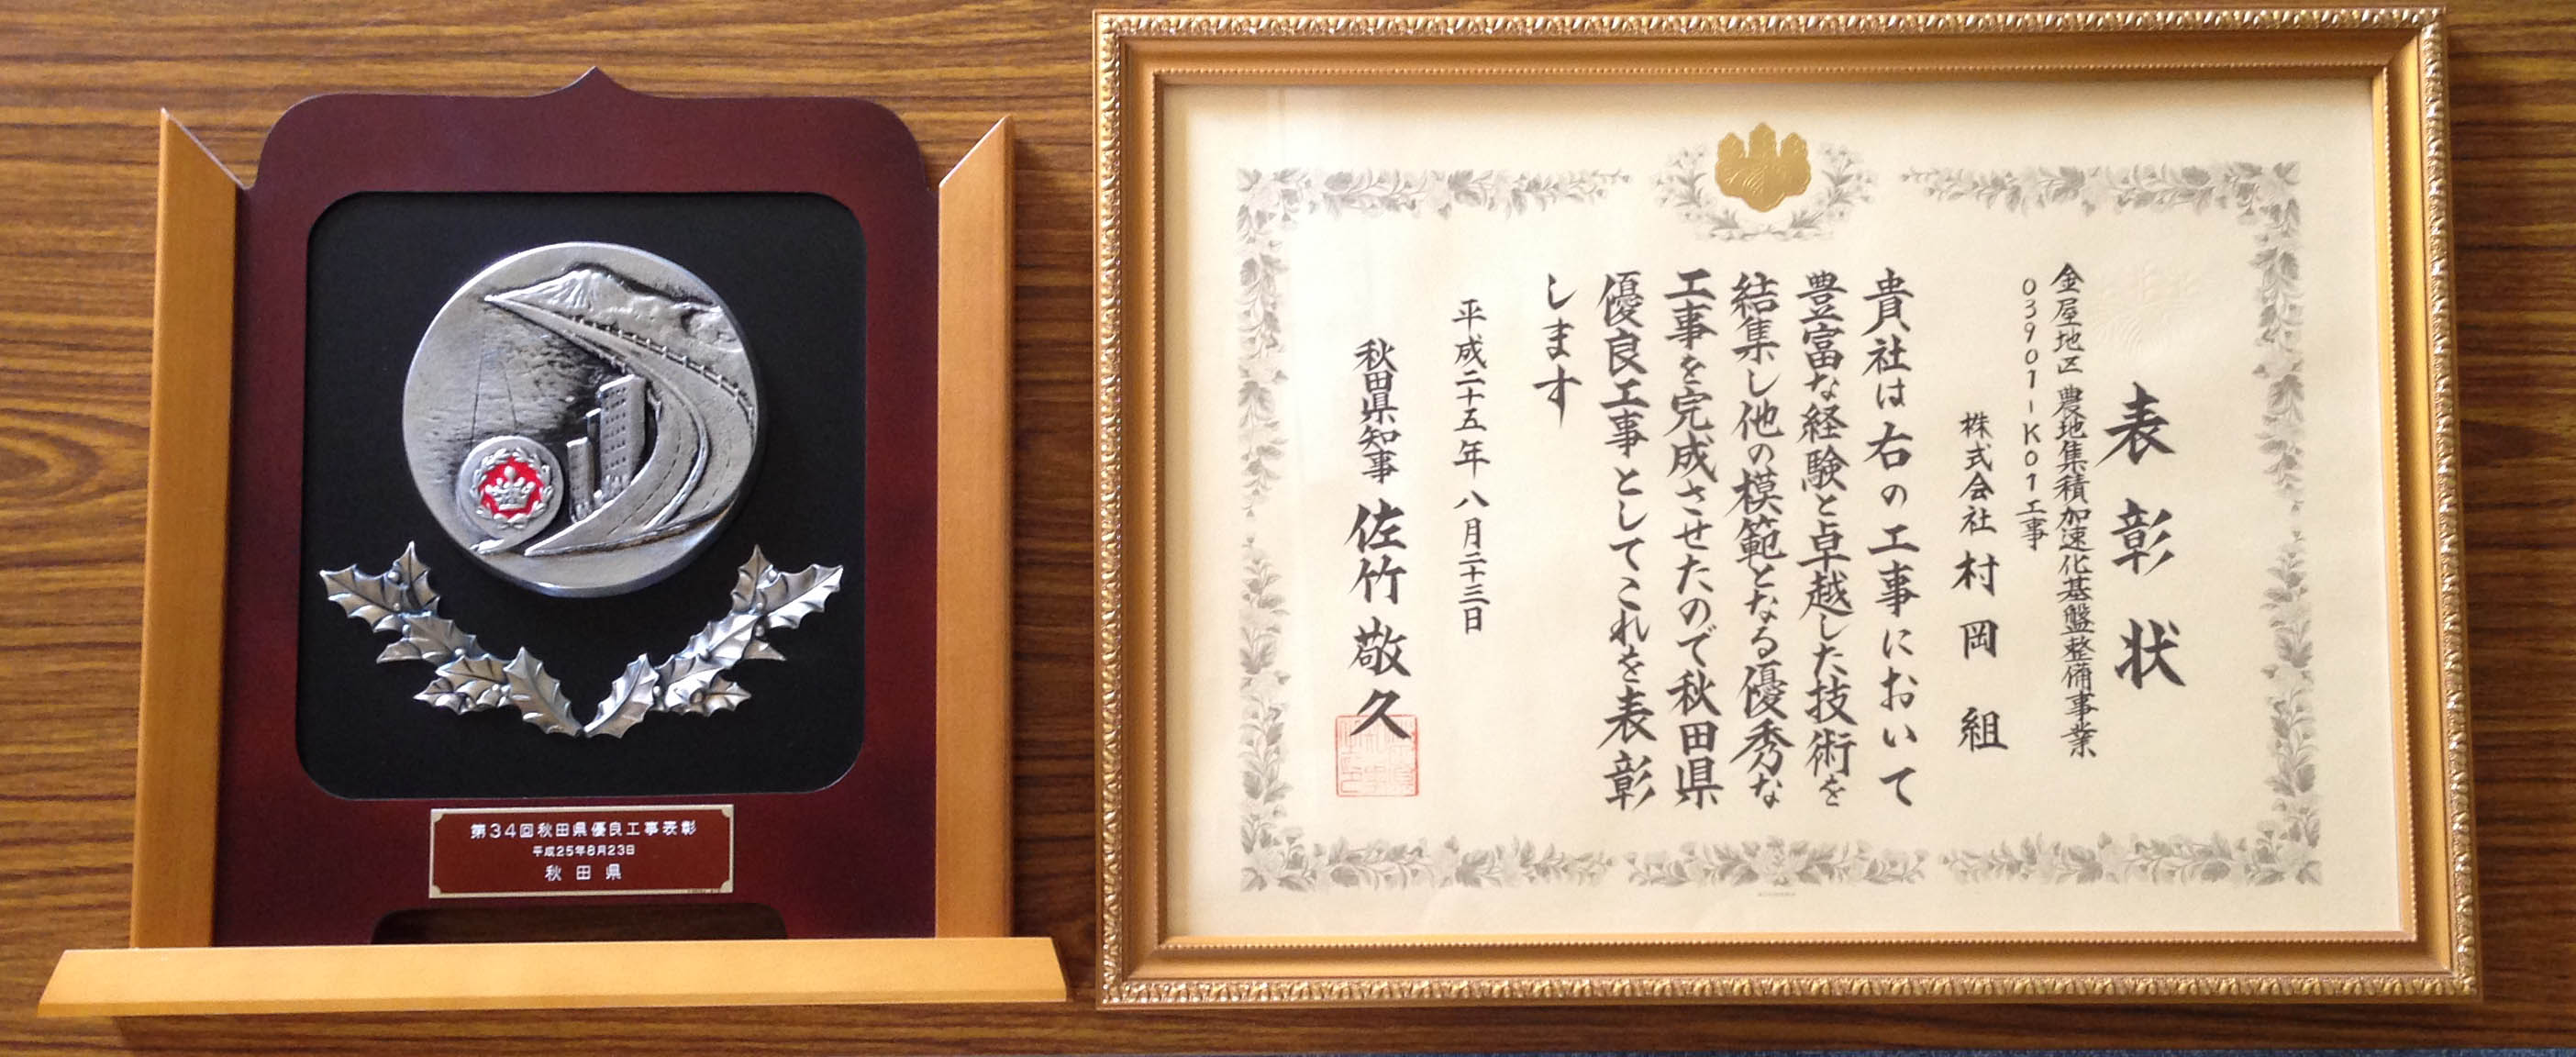 第34回秋田県優良工事表彰
平成25年8月23日
秋田県
表彰状
金屋地区 農地集積加速化基盤整備事業
03901-K01工事
株式会社 村岡組
貴社は右の工事において
豊富な経験と卓越した技術を
結集し他の模範となる優秀な
工事を完成させたので秋田県
優良工事としてこれを表彰
します
平成二十五年八月二十三日
秋田県知事 佐竹敬久